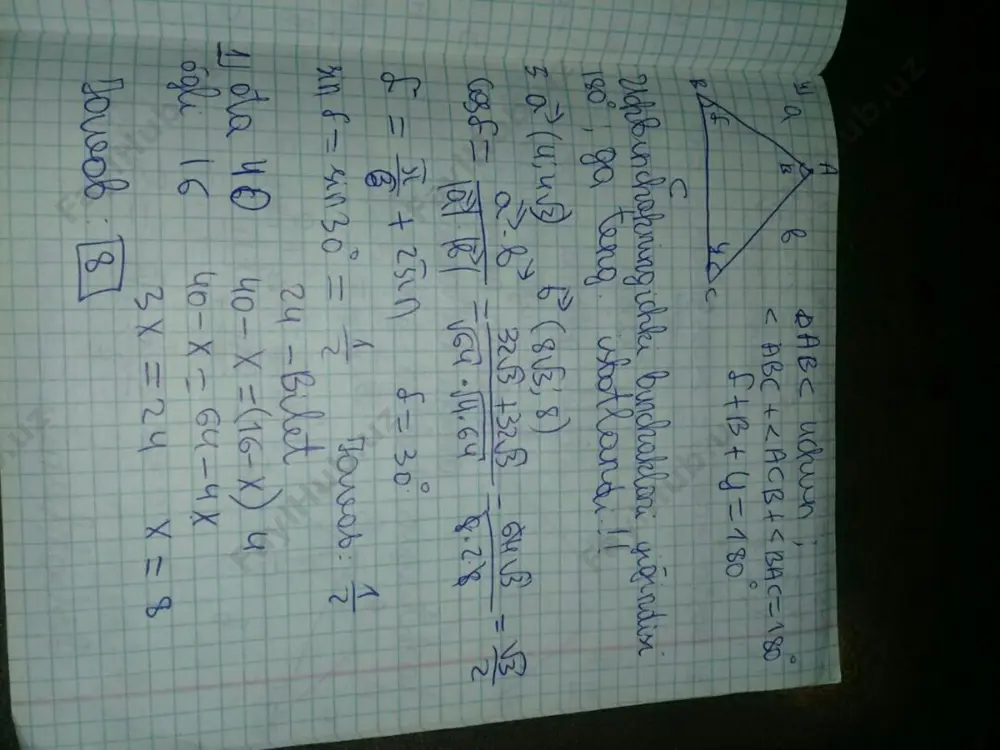 4) a A b
B C
c
ΔABC uchun;
<ABC+<ACB+<BAC=180°
α+β+γ=180°
Uchburchakning ichki burchaklari yig'indisi
180°, ga teng. isbotlandi!!
5 a→(4; 4√3) b→(8√3; 8)
cosα = a→·b→ / |a→|·|b→| = 32√3+32√3 / √64·√4·64 = 64√3 / 8·2·8 = √3/2
α = π/6 + 2πn α=30°
sinα = sin30° = 1/2 Javob: 1/2
24 - Bilet
1) ota 40 40-x=(16-x)4
o'gli 16 40-x=64-4x
3x=24 x=8
Javob: 8